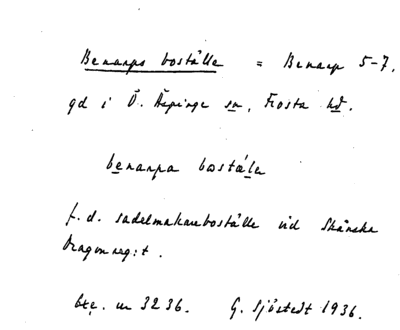 Benarps boställe = Benarp 5-7,
gd i Ö. Äspinge sn, Frosta hd.
benarpa bostälə
f.d. sadelmakareboställe vid Skånska
Dragonreg:t.
Exc. nr 3236. G. Sjöstedt 1936.